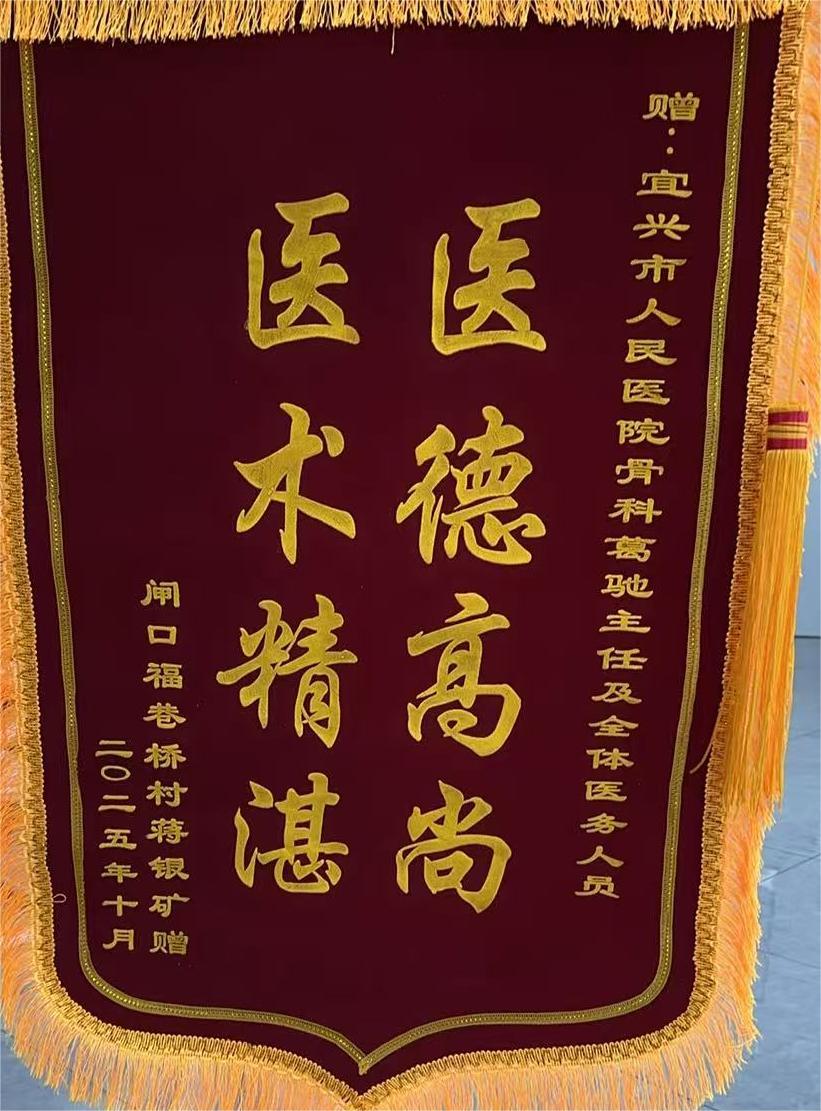 赠:宜兴市人民医院骨科葛驰主任及全体医务人员
医德高尚
医术精湛
闸口福巷桥村蒋银矿赠
二〇二五年十月